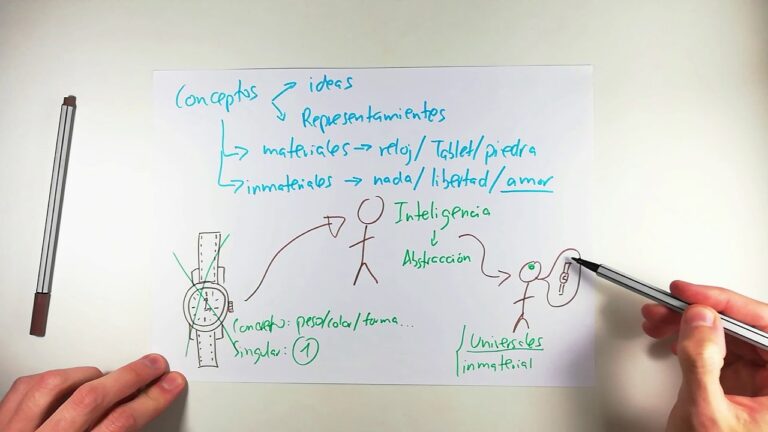 Conceptos
ideas
Representamientos
materiales → reloj / Tablet / piedra
inmateriales → nada / libertad / amor
Inteligencia
↓
Abstracción
Concepto: peso/color/forma...
Singular: 1
Universales
inmaterial